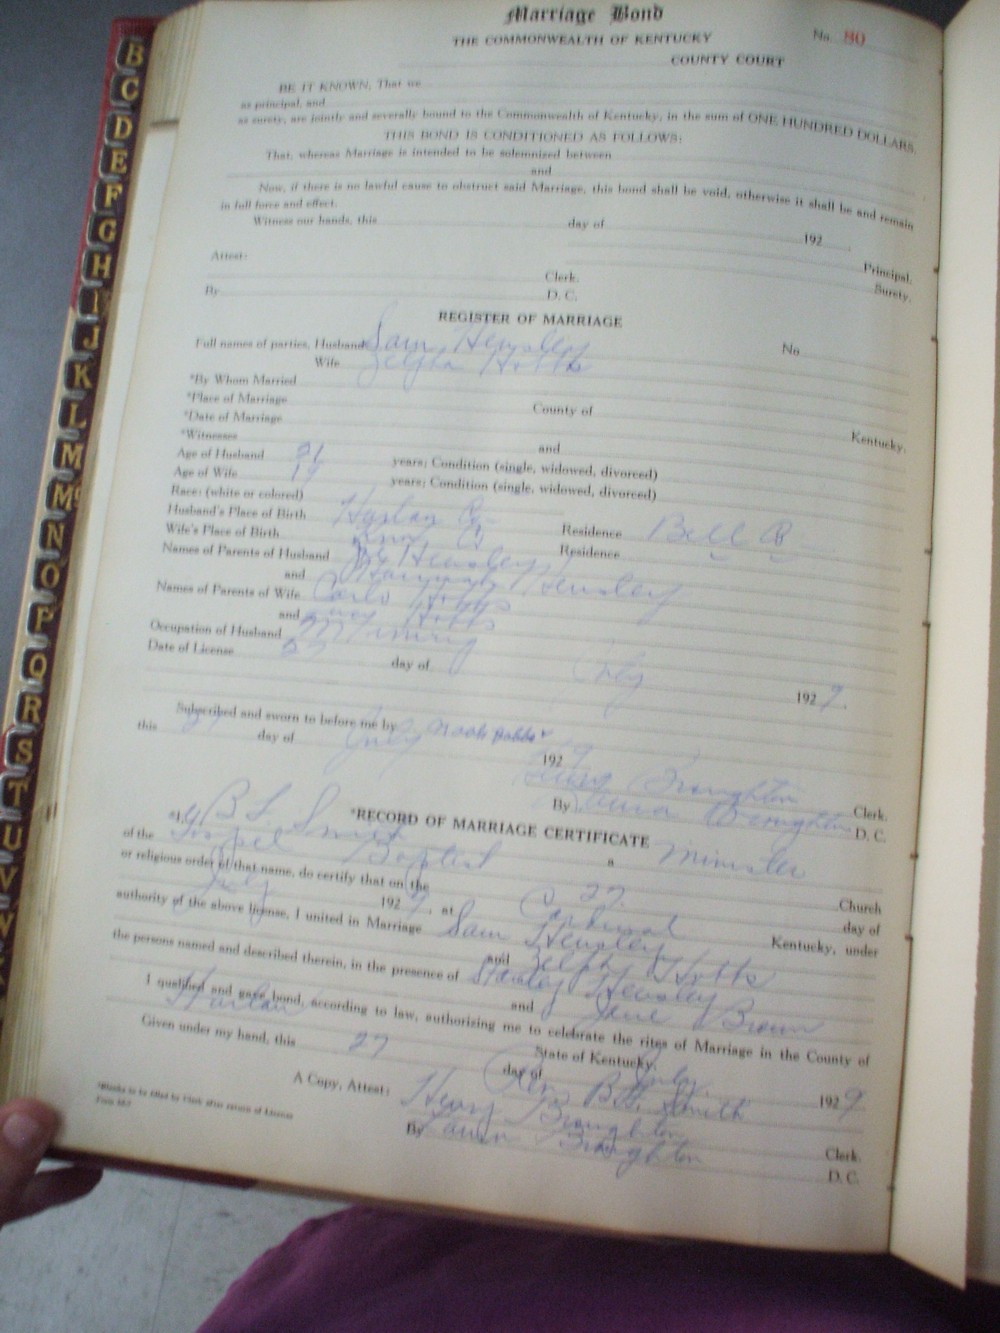 Marriage Bond
THE COMMONWEALTH OF KENTUCKY No. 80
COUNTY COURT
BE IT KNOWN, That we
as principal, and
as surety, are jointly and severally bound to the Commonwealth of Kentucky, in the sum of ONE HUNDRED DOLLARS.
THIS BOND IS CONDITIONED AS FOLLOWS:
That, whereas Marriage is intended to be solemnized between
and
Now, if there is no lawful cause to obstruct said Marriage, this bond shall be void, otherwise it shall be and remain
in full force and effect.
Witness our hands, this day of 192
Principal.
Attest: Surety.
Clerk.
By D. C.
REGISTER OF MARRIAGE
Full names of parties, Husband Sam Hensley No
Wife Zelpha Hobbs
*By Whom Married
*Place of Marriage County of Kentucky.
*Date of Marriage
*Witnesses and
Age of Husband 21 years; Condition (single, widowed, divorced)
Age of Wife 19 years; Condition (single, widowed, divorced)
Race: (white or colored)
Husband's Place of Birth Harlan Co Residence Bell Co
Wife's Place of Birth Residence
Names of Parents of Husband Hensley
and Hannah Hensley
Names of Parents of Wife Hobbs
and Hobbs
Occupation of Husband Mining
Date of License 27 day of July 1929
Subscribed and sworn to before me by Noah Hobbs
this 27 day of July 1929
Henry Broughton Clerk.
By Broughton D. C.
*RECORD OF MARRIAGE CERTIFICATE
*I, B L Smith a Minister
of the Gospel Baptist Church
or religious order of that name, do certify that on the 27 day of
July 1929, at Cardinal Kentucky, under
authority of the above license, I united in Marriage Sam Hensley
and Zelpha Hobbs
the persons named and described therein, in the presence of Stanley Hensley
and Jane Brown
I qualified and gave bond, according to law, authorizing me to celebrate the rites of Marriage in the County of
Harlan State of Kentucky.
Given under my hand, this 27 day of July 1929
Rev. Smith
A Copy, Attest: Henry Broughton Clerk.
By Broughton D. C.
*Blanks to be filled by Clerk after return of License
B
C
D
E
F
G
H
J
K
L
M
Mc
N
O
P
Q
R
S
T
U
V
W